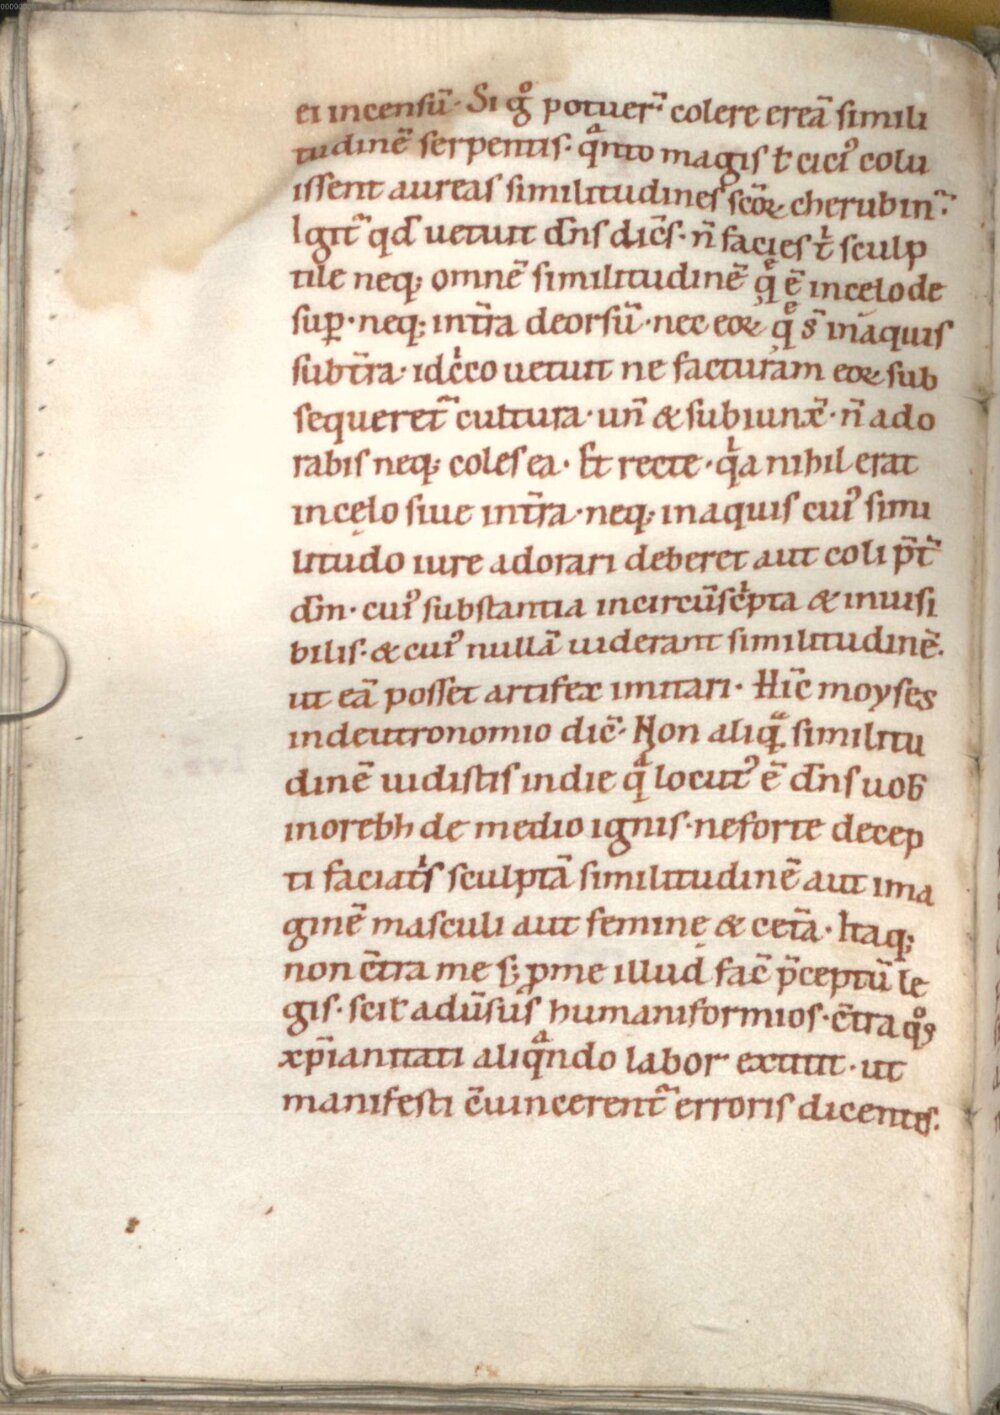 ei incensū· Si gͦ potuer̄· colere ereā simili
tudinē serpentis· qͣnto magis t̄ cicꝰ colu
issent aureas similitudines scōꝝ cherubin̄·
Igit̄ qđ uetuit dn̄s dic̄s· n̄ facies tⁱ sculp
tile neq; omnē similitudinē q̨ͤ ē in celo de
suꝑ· neq; in tr̄a deorsū· nec eoꝝ q̨ͤ s̄ in aquis
sub tr̄a· idcⁱco uetuit ne facturam eoꝝ sub
sequeret̄ cultura· un̄ & subiunx̄· n̄ ado
rabis neq; coles ea· Et recte· qⁱa nihil erat
in cęlo siue in tr̄a· neq; in aquis cuiꝰ simi
litudo iure adorari deberet aut coli p̄t̄
dm̄· cuiꝰ substantia incircūscⁱpta & inuisi
bilis· & cuiꝰ nullā uiderant similitudinē·
ut eā posset artifex imitari· Hīc moyses
in deutronomio dic̄· Non aliqͣ similitu
dinē uidistis in die qͣ locutꝰ ē dn̄s uob̄
in orebh de medio ignis· ne forte decep
ti faciatⁱs sculptā similitudinē aut ima
ginē masculi aut feminę & cet̄a· Itaq;
non c̄tra me s; ꝓ me illud fac̄ p̄ceptū le
gis· scił adūsus humaniformios· c̄tra qͦs
xp̄ianitati aliqͣndo labor extitit· ut
manifesti c̄uincerent̄ erroris dicentes·